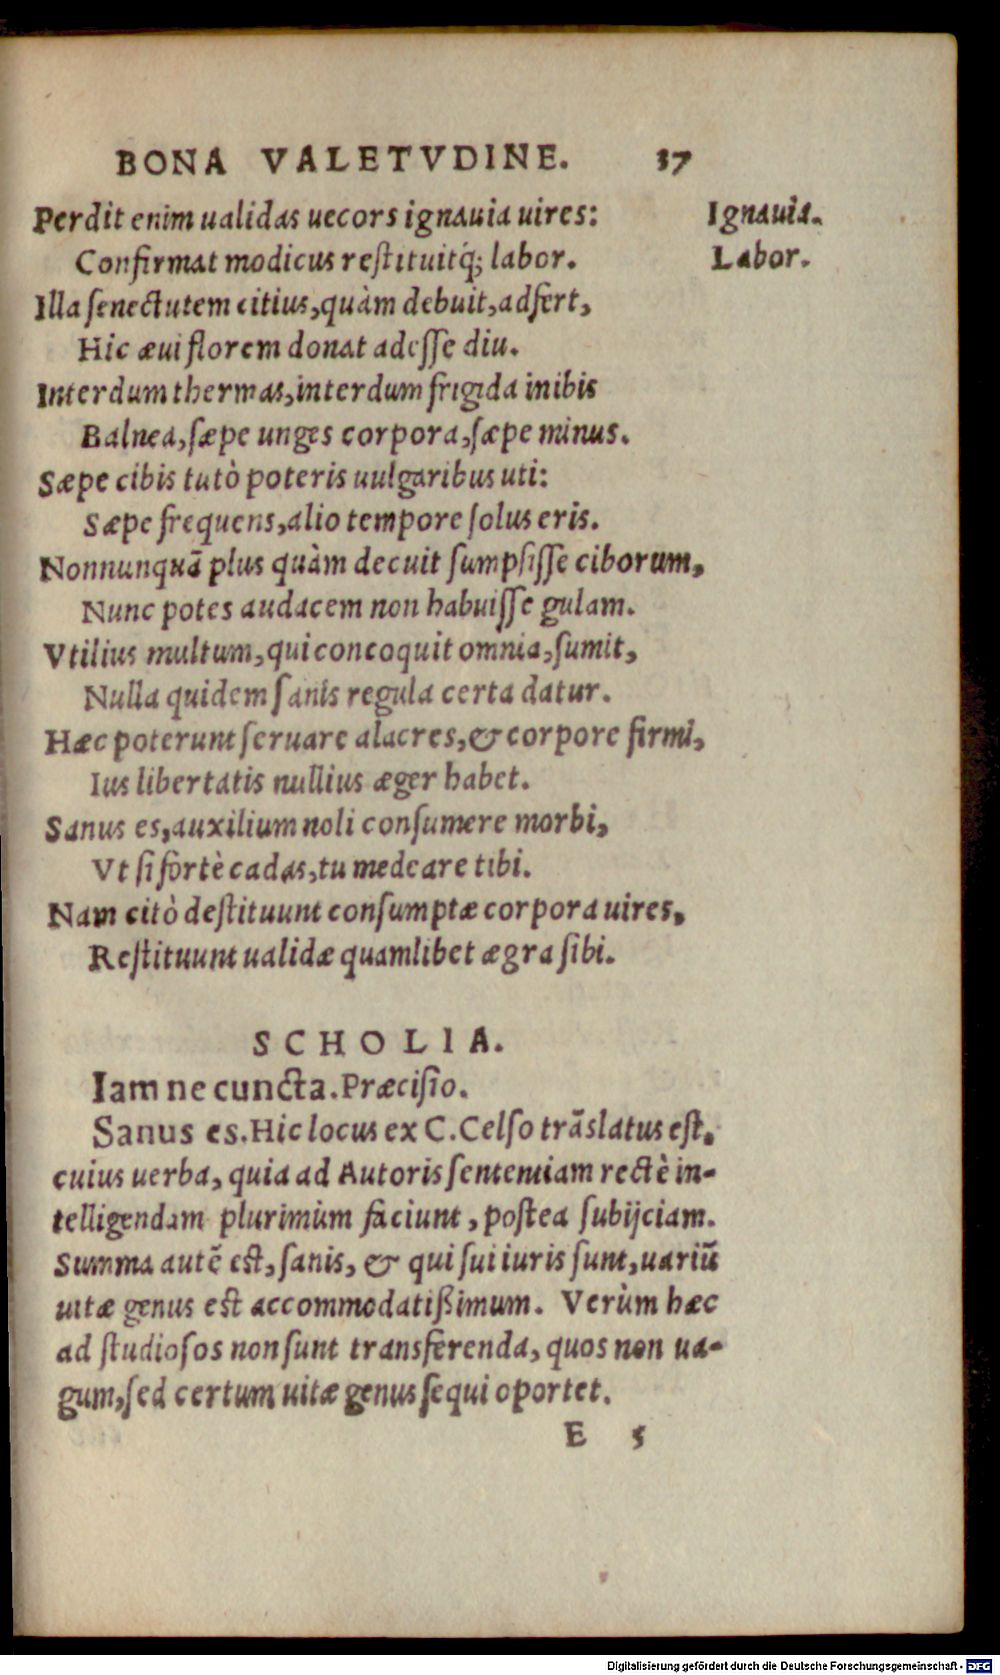 BONA VALETVDINE. 37
Perdit enim ualidas uecors ignauia uires: Ignauia.
Confirmat modicus restituitq́; labor. Labor.
Illa senectutem citius, quàm debuit, adfert,
Hic æui florem donat adesse diu.
Interdum thermas, interdum frigida inibis
Balnea, sæpe unges corpora, sæpe minus.
Sæpe cibis tutò poteris uulgaribus uti:
Sæpe frequens, alio tempore solus eris.
Nonnunquã plus quàm decuit sumpsisse ciborum,
Nunc potes audacem non habuisse gulam.
Vtilius multum, qui concoquit omnia, sumit,
Nulla quidem sanis regula certa datur.
Hæc poterunt seruare alacres, & corpore firmi,
Ius libertatis nullius æger habet.
Sanus es, auxilium noli consumere morbi,
Vt si fortè cadas, tu medeare tibi.
Nam citò destituunt consumptæ corpora uires,
Restituunt ualidæ quamlibet ægra sibi.
SCHOLIA.
Iam ne cuncta. Præcisio.
Sanus es. Hic locus ex C. Celso trãslatus est.
cuius uerba, quia ad Autoris sententiam rectè in-
telligendam plurimùm faciunt, postea subijciam.
Summa autẽ est, sanis, & qui sui iuris sunt, uariũ
uitæ genus est accommodatißimum. Verùm hæc
ad studiosos non sunt transferenda, quos non ua-
gum, sed certum uitæ genus sequi oportet.
E 5
Digitalisierung gefördert durch die Deutsche Forschungsgemeinschaft - DFG